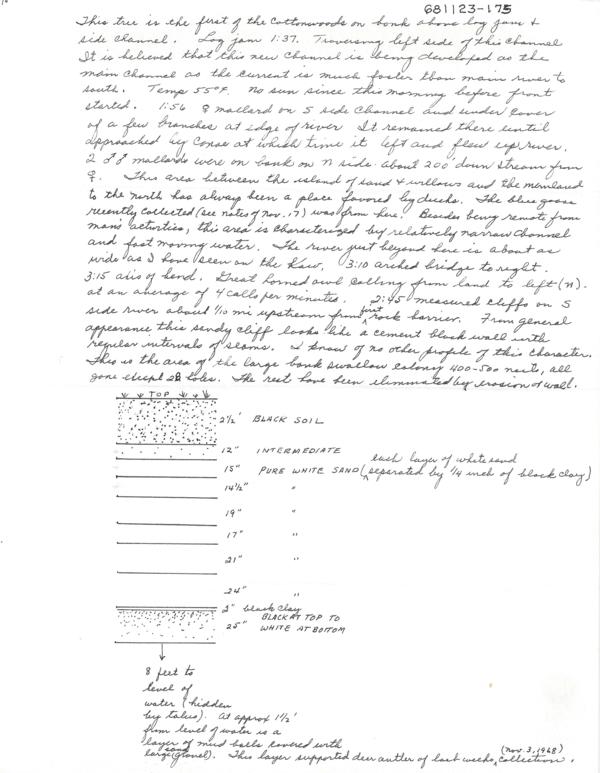 681123-175
This tree is the first of the Cottonwoods on bank above log jam +
side channel. Log jam 1:37. Traversing left side of this channel
It is believed that this new channel is being developed as the
main channel as the current is much faster than main river to
south. Temp 55°F. No sun since this morning before front
started. 1:56 ♀ mallard on S side channel and under cover
of a few branches at edge of river It remained there until
approached by canoe at which time it left and flew up river.
2 ♂♂ mallards were on bank on N side about 200' down stream from
♀. This area between the island of sand + willows and the mainland
to the north has always been a place favored by ducks. The blue goose
recently collected (see notes of Nov. 17) was from here. Besides being remote from
man's activities, this area is characterized by relatively narrow channel
and fast moving water. The river just beyond here is about as
wide as I have seen on the Kaw. 3:10 arched bridge to right.
3:15 axis of bend. Great horned owl calling from land to left (N).
at an average of 4 calls per minute. 2:45 measured cliffs on S
side river about 1/10 mi upstream from just rock barrier. From general
appearance this sandy cliff looks like a cement block wall with
regular intervals of seams. I know of no other profile of this character.
This is the area of the large bank swallow colony 400-500 nests, all
gone except 28 holes. The rest have been eliminated by erosion of wall.
TOP
2½' BLACK SOIL
12" INTERMEDIATE
15" PURE WHITE SAND (each layer of white sand separated by ¼ inch of black clay)
14½" "
19" "
17" "
21" "
24" "
2" black clay
25" BLACK AT TOP TO
WHITE AT BOTTOM
8 feet to
level of
water (hidden
by talus). At approx 1½'
from level of water is a
layer of mud balls covered with
large sand (gravel). This layer supported deer antler of last weeks (Nov. 3, 1968) collection.